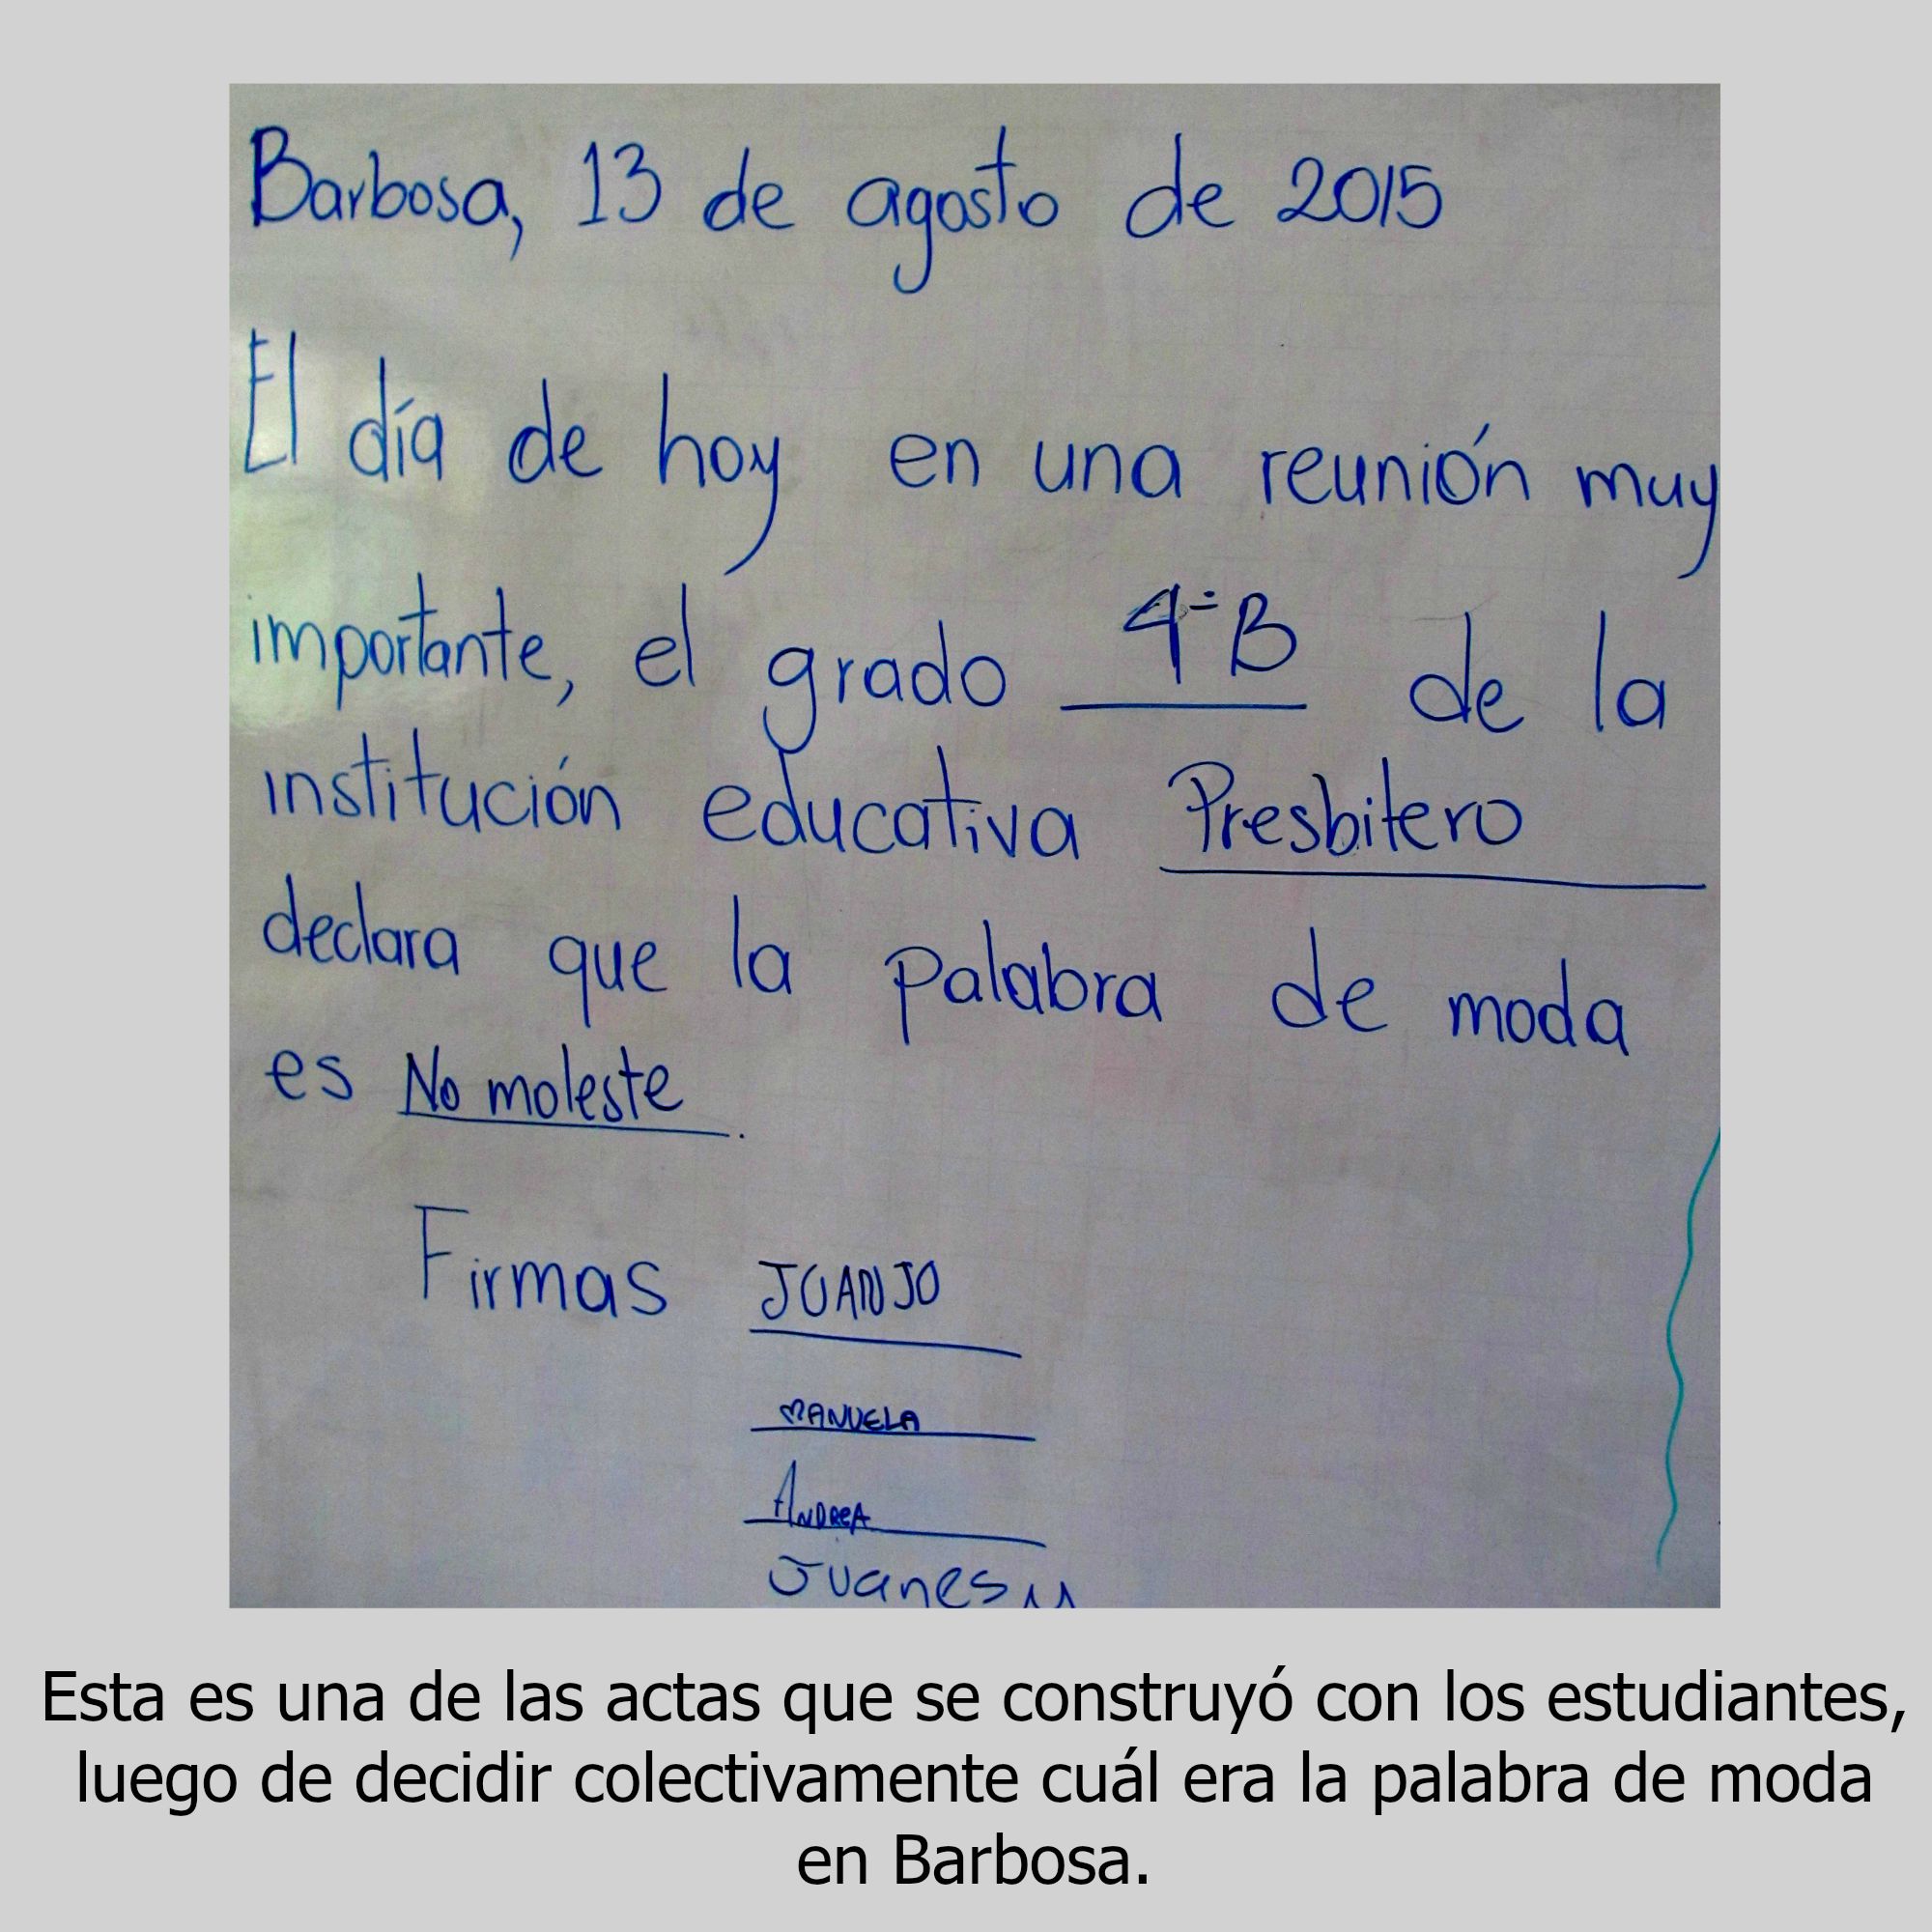 Barbosa, 13 de agosto de 2015
El día de hoy en una reunión muy
importante, el grado 4°B de la
institución educativa Presbitero
declara que la palabra de moda
es No moleste.
Firmas JUANJO
MANUELA
ANDREA
Juanes
Esta es una de las actas que se construyó con los estudiantes,
luego de decidir colectivamente cuál era la palabra de moda
en Barbosa.